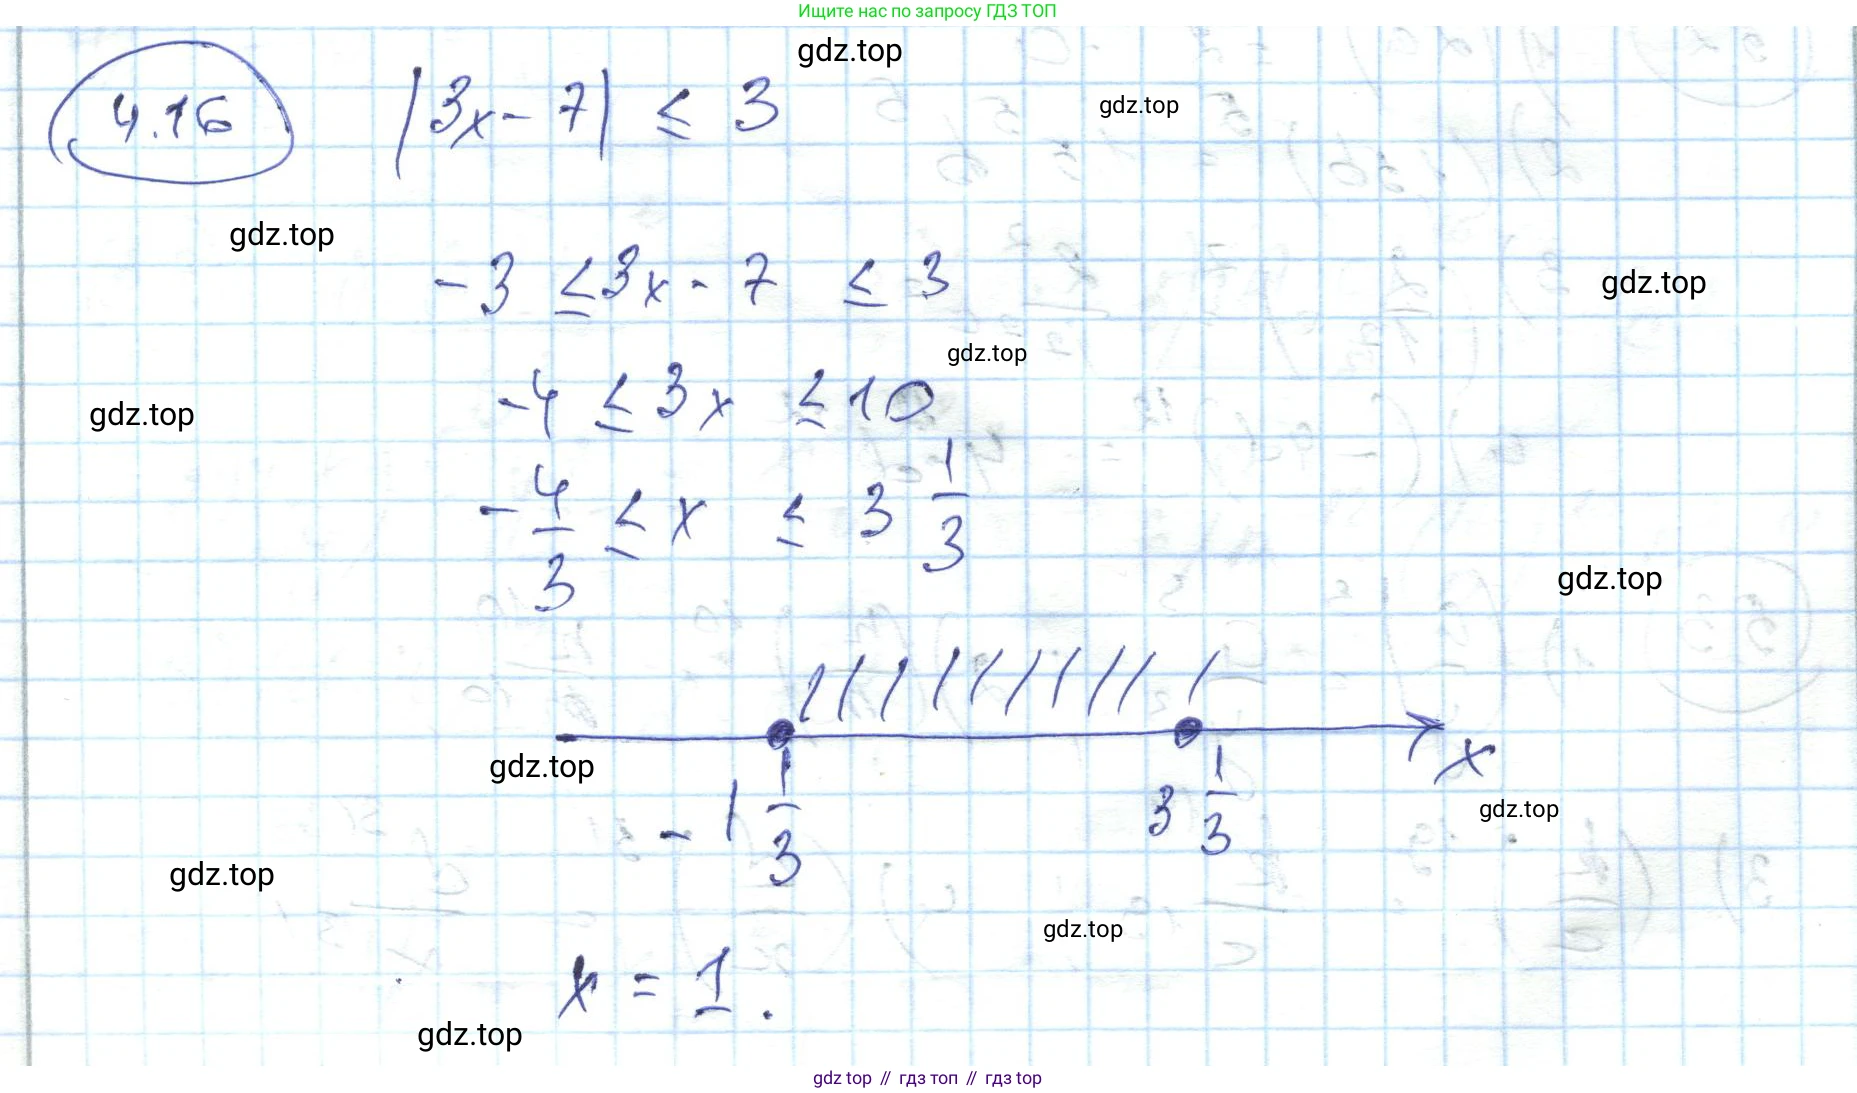 Ищите нас по запросу ГДЗ ТОП
gdz.top
4.16 |3x - 7| ≤ 3
gdz.top
gdz.top
-3 ≤ 3x - 7 ≤ 3
gdz.top
gdz.top
-4 ≤ 3x ≤ 10
gdz.top
-4/3 ≤ x ≤ 3 1/3
gdz.top
x
gdz.top
-1 1/3 3 1/3
gdz.top
gdz.top
gdz.top
x = 1.
gdz.top
gdz top // гдз топ // гдз top